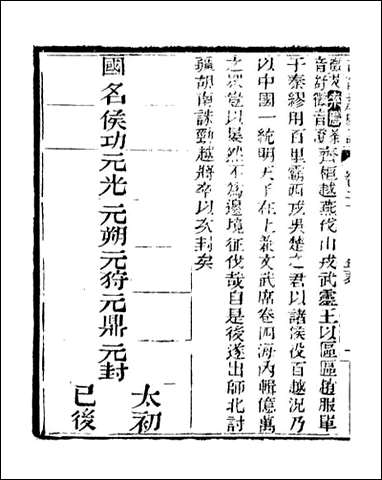 齊桓越燕伐山戎武靈王以區區趙服單
于秦繆用百里霸西戎吳楚之君以諸侯役百越況乃
以中國一統明天子在上兼文武席卷四海內輯億萬
之眾豈以晏然不為邊境征伐哉自是後遂出師北討
彊胡南誅勁越將卒以次封矣
國名侯功元光元朔元狩元鼎元封
太初
已後